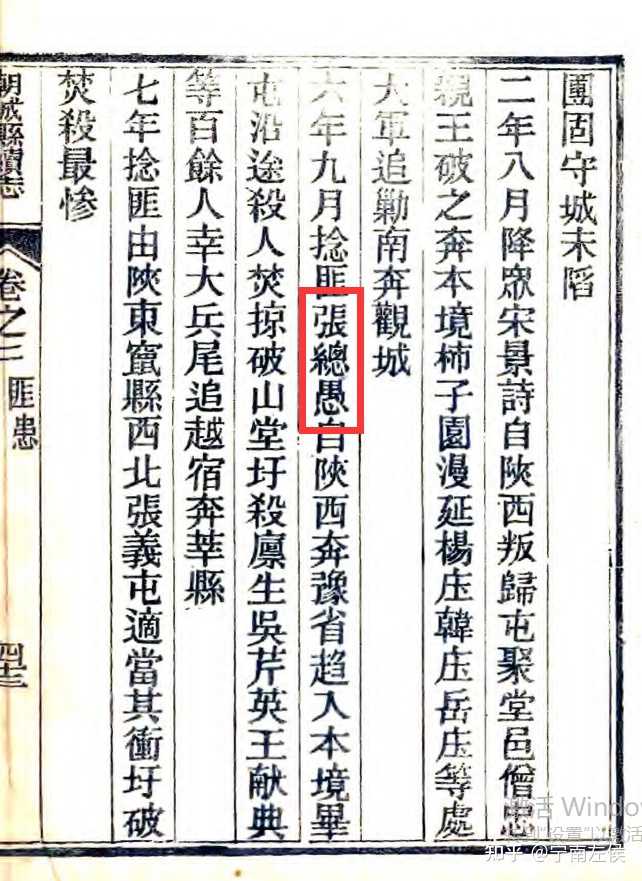 團固守城未陷
二年八月降眾宋景詩自陝西叛歸屯聚堂邑僧忠
親王破之奔本境柿子園漫延楊庄韓庄岳庄等處
大軍追勦南奔觀城
六年九月捻匪張總愚自陝西奔豫省趨入本境畢
屯沿途殺人焚掠破山堂圩殺廩生吳芹英王献典
等百餘人幸大兵尾追越宿奔莘縣
七年捻匪由陝東竄縣西北張義屯適當其衝圩破
焚殺最慘
朝城縣續志
卷之二
匪患
激活 Windo
到"设置"以激活
知乎 @宁南左侯